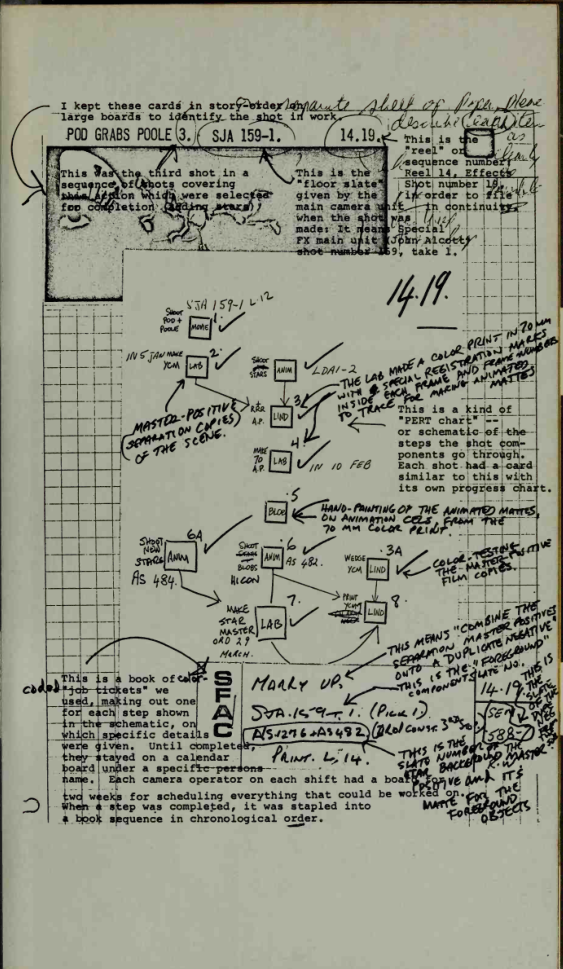 I kept these cards in story-order on
large boards to identify the shot in work.
separate sheet of paper, please
describe each item
as
POD GRABS POOLE 3. SJA 159-1. 14.19.
This was the third shot in a
sequence of shots covering
this action which were selected
for completion (adding stars)
This is the
"floor slate"
given by the
main camera unit
when the shot was
made: It means Special
FX main unit (John Alcott)
shot number 159, take 1.
This is the
"reel" or
sequence number;
Reel 14, Effects
Shot number 19
in order to file
in continuity
14.19.
SJA 159-1 L.12
SHOOT
POD +
POOLE
MOVIE
1.
IN 5 JAN MAKE
YCM
LAB
2.
SHOOT
STARS
ANIM
LDA1-2
MASTER-POSITIVE
SEPARATION COPIES
OF THE SCENE.
A.P.
LIND
3
THE LAB MADE A COLOR PRINT IN 70 MM
WITH SPECIAL REGISTRATION MARKS
INSIDE EACH FRAME AND FRAME NUMBERS
TO TRACE FOR MAKING ANIMATED
MATTES
MAKE
70
A.P.
LAB
4
IN 10 FEB
This is a kind of
"PERT chart" --
or schematic of the
steps the shot com-
ponents go through.
Each shot had a card
similar to this with
its own progress chart.
BLOB
5
HAND-PAINTING OF THE ANIMATED MATTES,
ON ANIMATION CELS, FROM THE
70 MM COLOR PRINT.
SHOOT
NEW
STARS
ANIM
6A
AS 484.
SHOOT
BLOBS
HICON
ANIM
6
AS 482.
WEDGE
YCM
LIND
3A
COLOR-TESTING
THE MASTER POSITIVE
FILM COPIES.
MAKE
STAR
MASTER
ORD 29
MARCH.
LAB
7.
PRINT
YCM
LIND
8.
THIS MEANS "COMBINE THE
SEPARATION MASTER POSITIVES
ONTO A DUPLICATE NEGATIVE"
THIS IS THE "FOREGROUND"
COMPONENT SLATE NO.
coded
This is a book of color-
"job tickets" we
used, making out one
for each step shown
in the schematic, on
which specific details
were given. Until completed,
they stayed on a calendar
board under a specific persons
name. Each camera operator on each shift had a board for
two weeks for scheduling everything that could be worked on.
When a step was completed, it was stapled into
a book sequence in chronological order.
SFAC
MARRY UP,
SJA.159-1. (PICK 1)
PRINT. L, 14.
14.19.
THIS IS THE
SLATE NUMBER OF THE
STAR BACKGROUND MASTER
POSITIVE AND ITS
MATTE FOR THE
FOREGROUND
OBJECTS